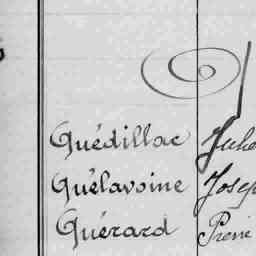 Guédillac
Guélavoine Joseph
Guérard Pierre